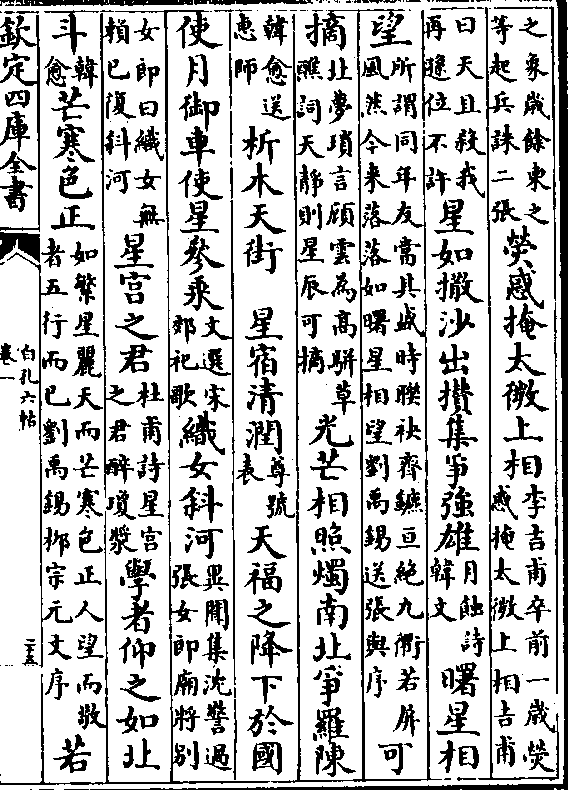 之象歲餘東之
等起兵誅二張
熒惑掩太微上相
李吉甫卒前一歲熒
惑掩太微上相吉甫
曰天且殺我
再遜位不許
星如撒沙出攢集爭強雄
月蝕詩
韓文
曙星相
望
所謂同年友當其盛時聯袂齊鑣亘絶九衢若屏
風然今来落落如曙星相望劉禹錫送張輿序
可
摘
北夢瑣言顧雲為高駢草
醮詞天靜則星辰可摘
光芒相照燭南北爭羅陳
韓愈送
惠師
析木天街 星宿清潤
尊號
表
天福之降下於國
使月御車使星參乘
文選宋
郊祀歌
織女斜河
異聞集沈警過
張女郎廟將别
女郎曰織女無
頼已復斜河
星宫之君
杜甫詩星宫
之君醉瓊漿
學者仰之如北
斗
韓
愈
芒寒色正
如繁星麗天而芒寒色正人望而敬
者五行而已劉禹錫栁宗元文序
若
欽定四庫全書
白孔六帖
卷一
二十五